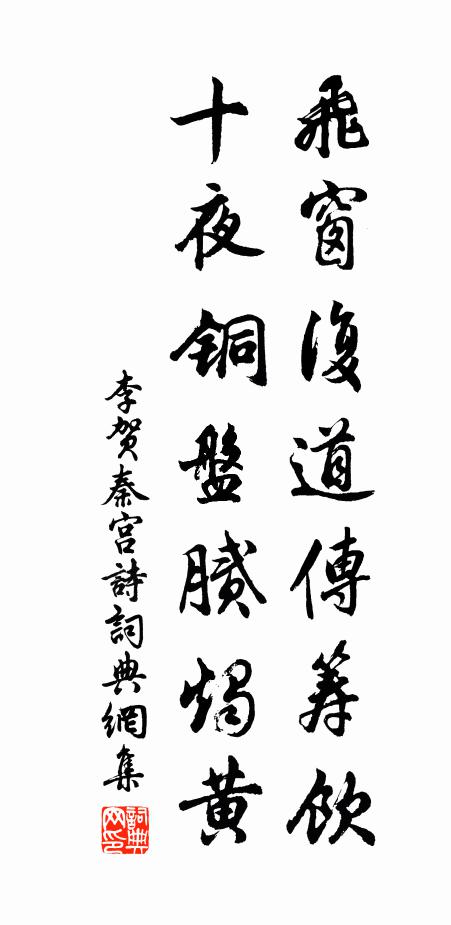 飛窗復道傳籌飲
十夜銅盤膩燭黃
李賀秦宮詩詞典網集
詞典网印